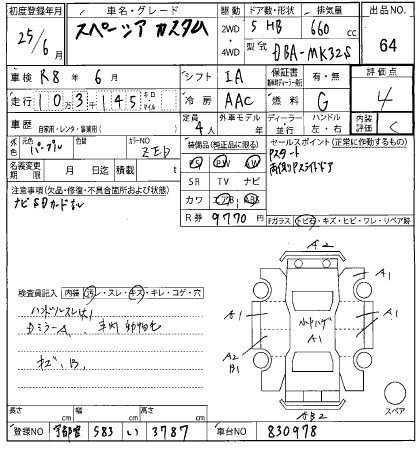 初度登録年月 車名・グレード 駆動 ドア数・形状 排気量 出品NO.
25/6月 スペーシア カスタム 2WD・4WD 5 HB 660 cc 64
型式 DBA-MK32S
車検 R8年 6月 シフト IA 保証書 有・無 評価点
走行 10万3千145 キロ マイル 冷房 AAC 燃料 G 4
車歴 自家用・レンタ・事業用( ) 定員 4人 外車モデル 年 ディーラー 並行 ハンドル 左・右 内装評価 C
元色 パープル 色替 カラーNO ZED
装備品(純正品に限る) セールスポイント(正常に作動するもの)
PS PW AW
Pスタート
SR TV ナビ
両側Pスライドドア
名義変更期限 月 日迄 積載 t
カワ エアB ABS
注意事項(欠品・修復・不具合箇所および状態)
R券 9770円
ナビSDカードなし
Fガラス トビ石・キズ・ヒビ・ワレ・リペア跡
検査員記入 内装 汚レ・スレ・キズ・キレ・コゲ・穴
A2
A1 A1
ハンドルスレ
A1 A1
A1
A2
B1
A1
キズ、B、
AB2
スペア
長さ cm 幅 cm 高さ cm
登録NO 宇都宮 583 い 3787 車台NO 830978